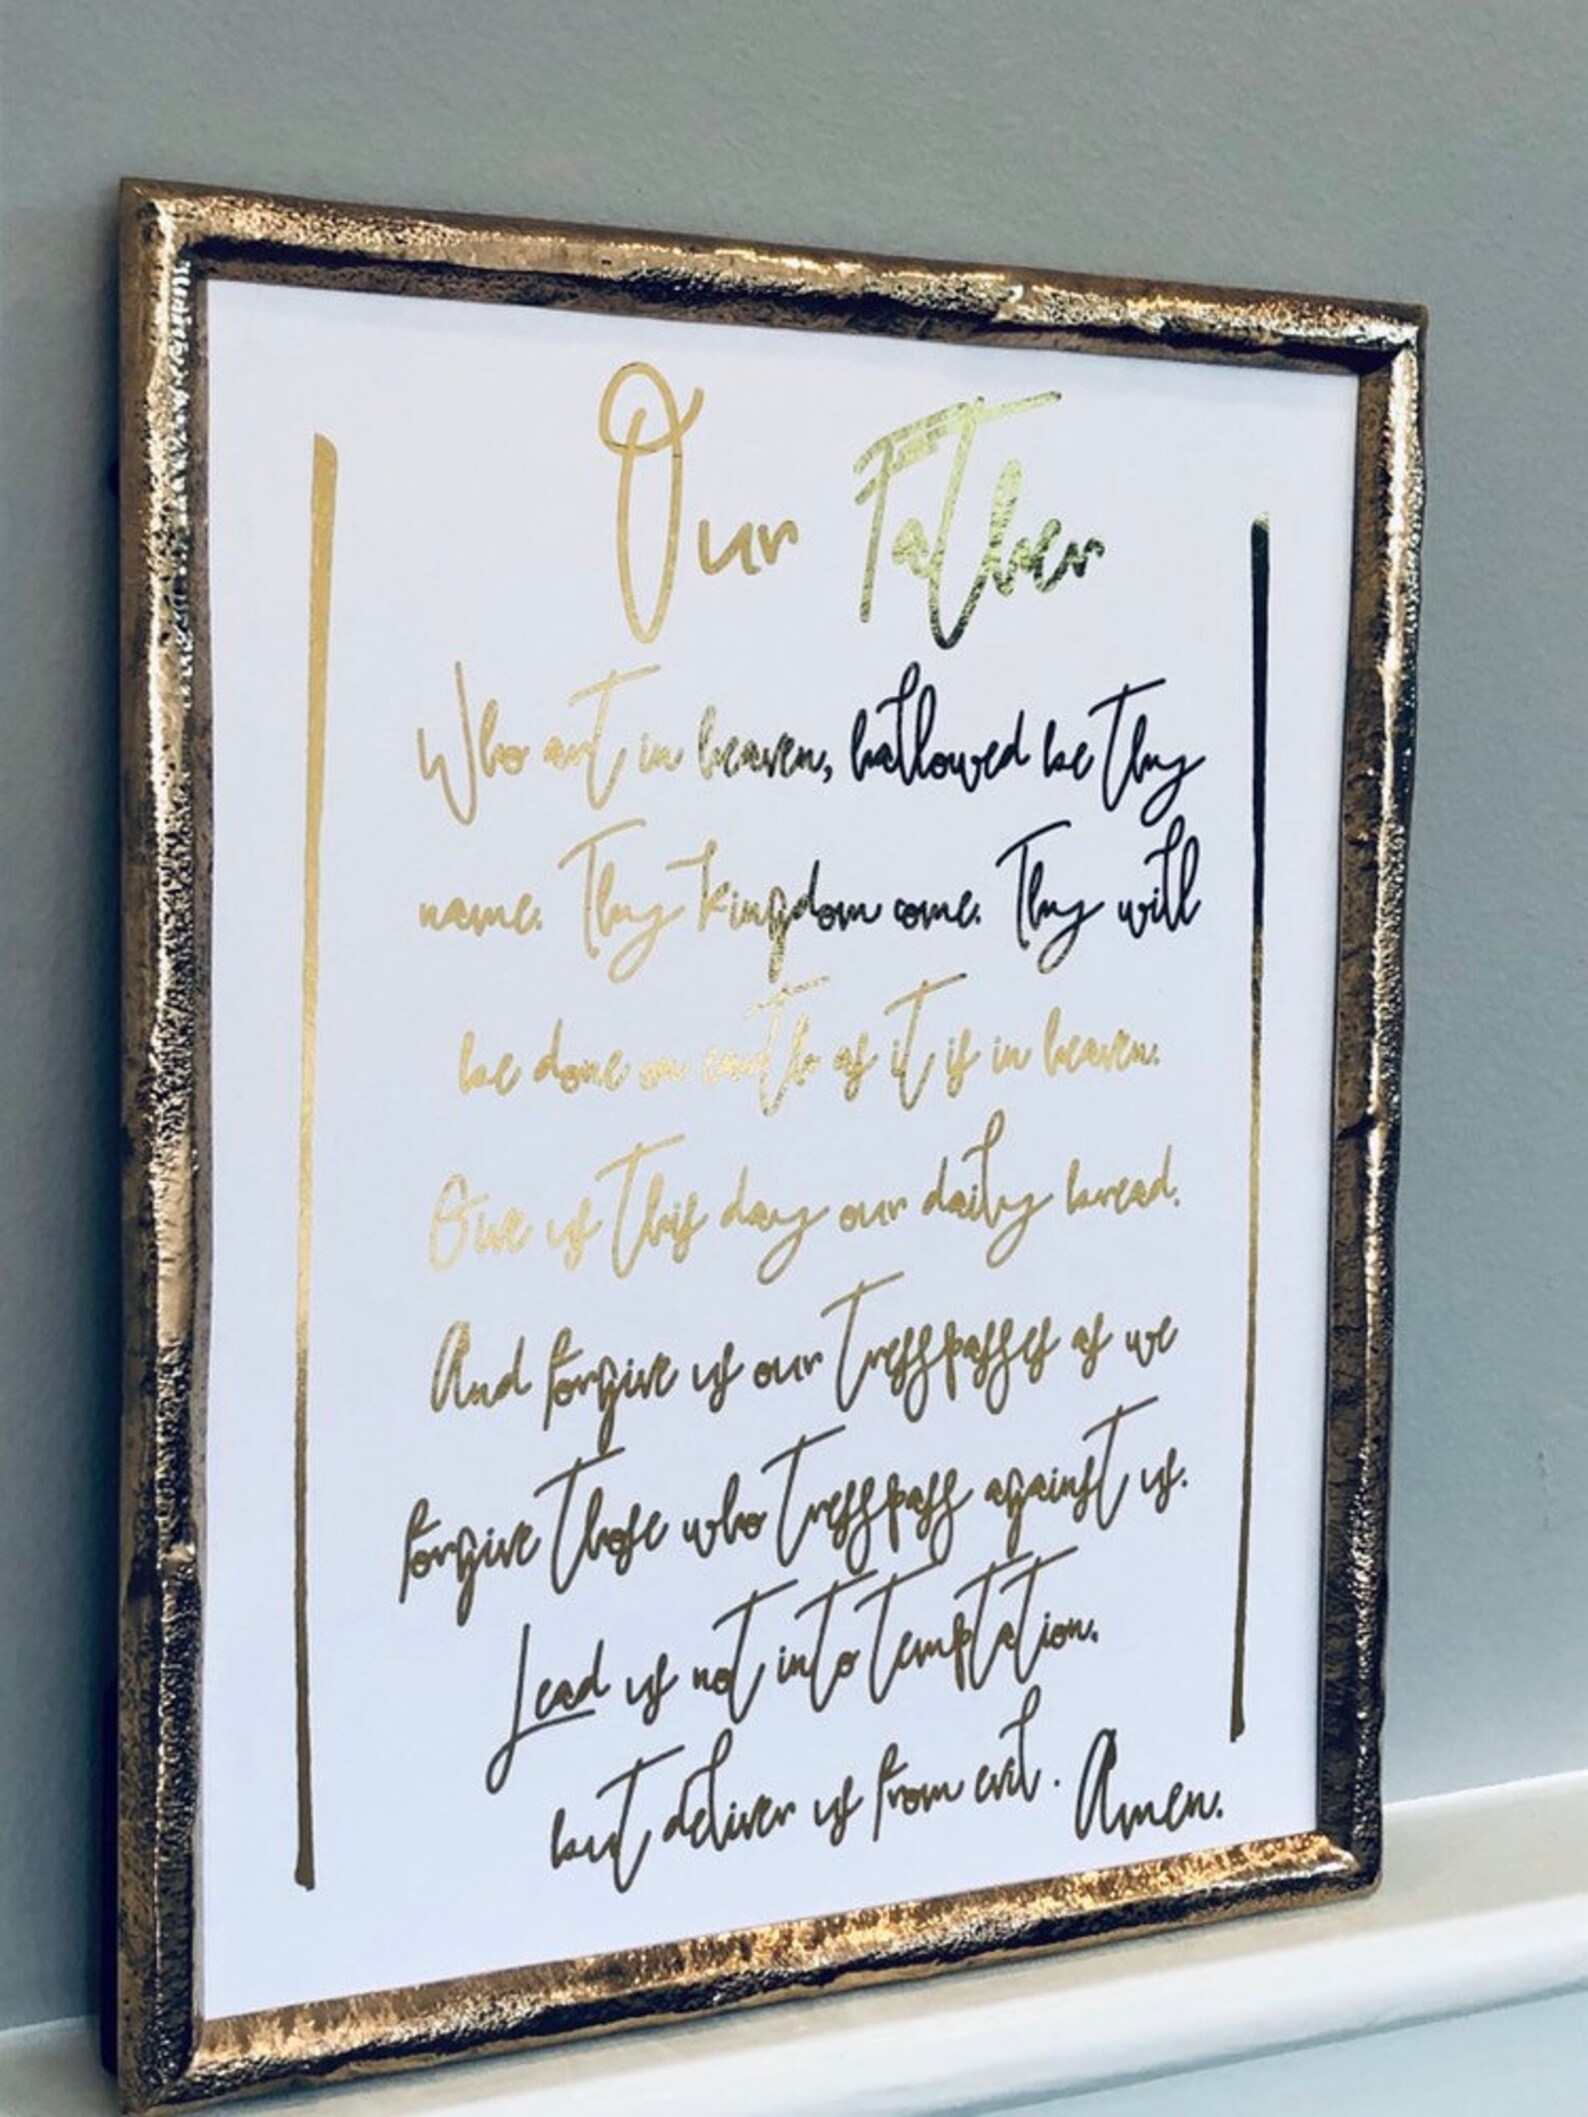 Our Father
Who art in heaven, hallowed be thy
name. Thy Kingdom come. Thy will
be done on earth as it is in heaven.
Give us this day our daily bread.
And forgive us our tresspasses as we
forgive those who tresspass against us.
Lead us not into temptation,
but deliver us from evil. Amen.